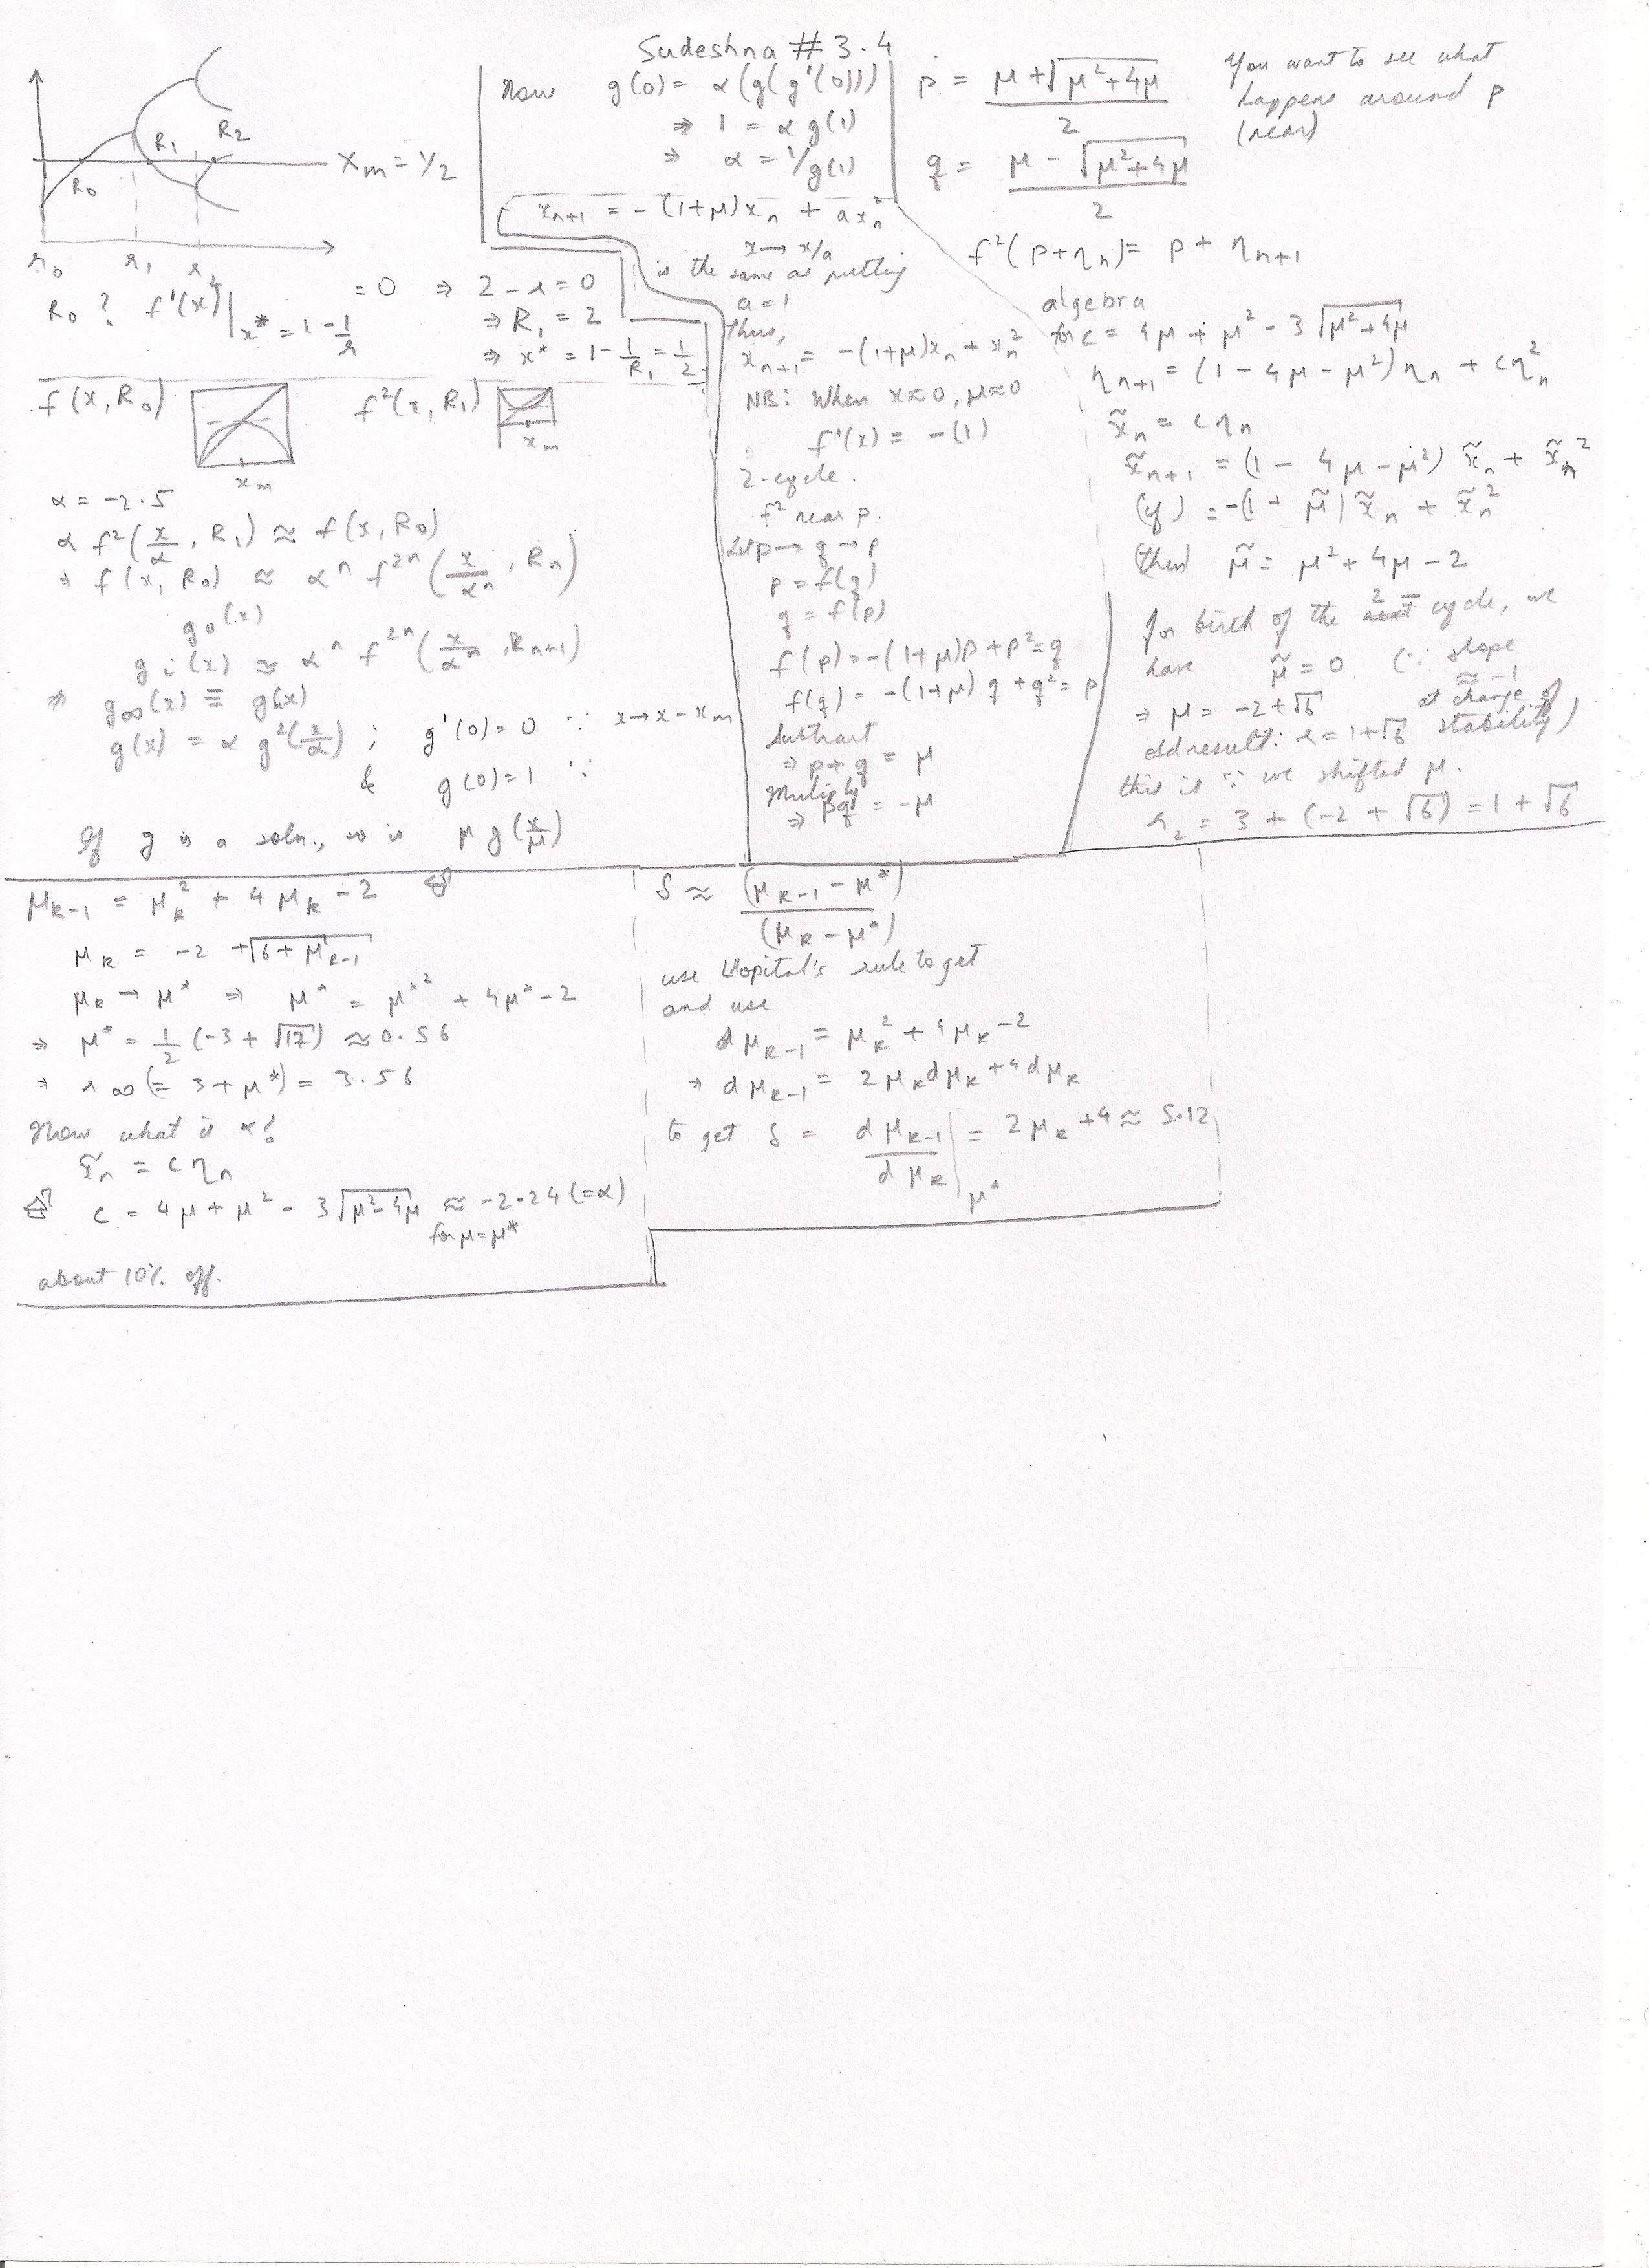 Sudeshna # 3.4
R₀
R₁
R₂
x_m = 1/2
r₀ r₁ r₂
R₀ ? f'(x)|_{x* = 1 - 1/r} = 0 ⇒ 2 - r = 0
⇒ R₁ = 2
⇒ x* = 1 - 1/R₁ = 1/2
f(x, R₀)
x_m
f²(x, R₁)
x_m
α = -2.5
α f²(x/α, R₁) ≈ f(x, R₀)
⇒ f(x, R₀) ≈ αⁿ f^{2n}(x/αⁿ, Rₙ)
g₀(x)
g_i(x) ≈ αⁿ f^{2n}(x/αⁿ, R_{n+1})
⇒ g_∞(x) ≡ g(x)
g(x) = α g²(x/α) ; g'(0) = 0 ∵ x → x - x_m
& g(0) = 1 ∵
If g is a soln., so is μ g(x/μ)
Now g(0) = α(g(g'(0)))
⇒ 1 = α g(1)
⇒ α = 1/g(1)
x_{n+1} = -(1+μ)x_n + a x_n²
x → x/a
is the same as putting
a = 1
Thus,
x_{n+1} = -(1+μ)x_n + x_n²
NB: When x ≈ 0, μ ≈ 0
f'(x) = -(1)
2-cycle.
f² near p.
Let p → q → p
p = f(q)
q = f(p)
f(p) = -(1+μ)p + p² = q
f(q) = -(1+μ)q + q² = p
Subtract
⇒ p + q = μ
Multiply
⇒ pq = -μ
p = (μ + √(μ² + 4μ))/2
q = (μ - √(μ² + 4μ))/2
You want to see what
happens around p
(near)
f²(p + η_n) = p + η_{n+1}
algebra
for c = 4μ + μ² - 3√(μ² + 4μ)
η_{n+1} = (1 - 4μ - μ²) η_n + cη_n²
x̃_n = c η_n
x̃_{n+1} = (1 - 4μ - μ²) x̃_n + x̃_n²
(if) = -(1 + μ̃) x̃_n + x̃_n²
(then) μ̃ = μ² + 4μ - 2
for birth of the 2- cycle, we
have μ̃ = 0 (∵ slope
≈ -1
at change of
stability)
⇒ μ = -2 + √6
old result: r = 1 + √6
this is ∵ we shifted μ.
r₂ = 3 + (-2 + √6) = 1 + √6
μ_{k-1} = μ_k² + 4μ_k - 2
μ_k = -2 + √(6 + μ_{k-1})
μ_k → μ* ⇒ μ* = μ*² + 4μ* - 2
⇒ μ* = 1/2 (-3 + √17) ≈ 0.56
⇒ r_∞ (= 3 + μ*) = 3.56
Now what is α?
x̃_n = c η_n
c = 4μ + μ² - 3√(μ² - 4μ) ≈ -2.24 (=α)
for μ = μ*
about 10% off.
δ ≈ (μ_{k-1} - μ*)/(μ_k - μ*)
use L'Hopital's rule to get
and use
dμ_{k-1} = μ_k² + 4μ_k - 2
⇒ dμ_{k-1} = 2μ_k dμ_k + 4dμ_k
to get δ = dμ_{k-1}/dμ_k |_{μ*} = 2μ_k + 4 ≈ 5.12